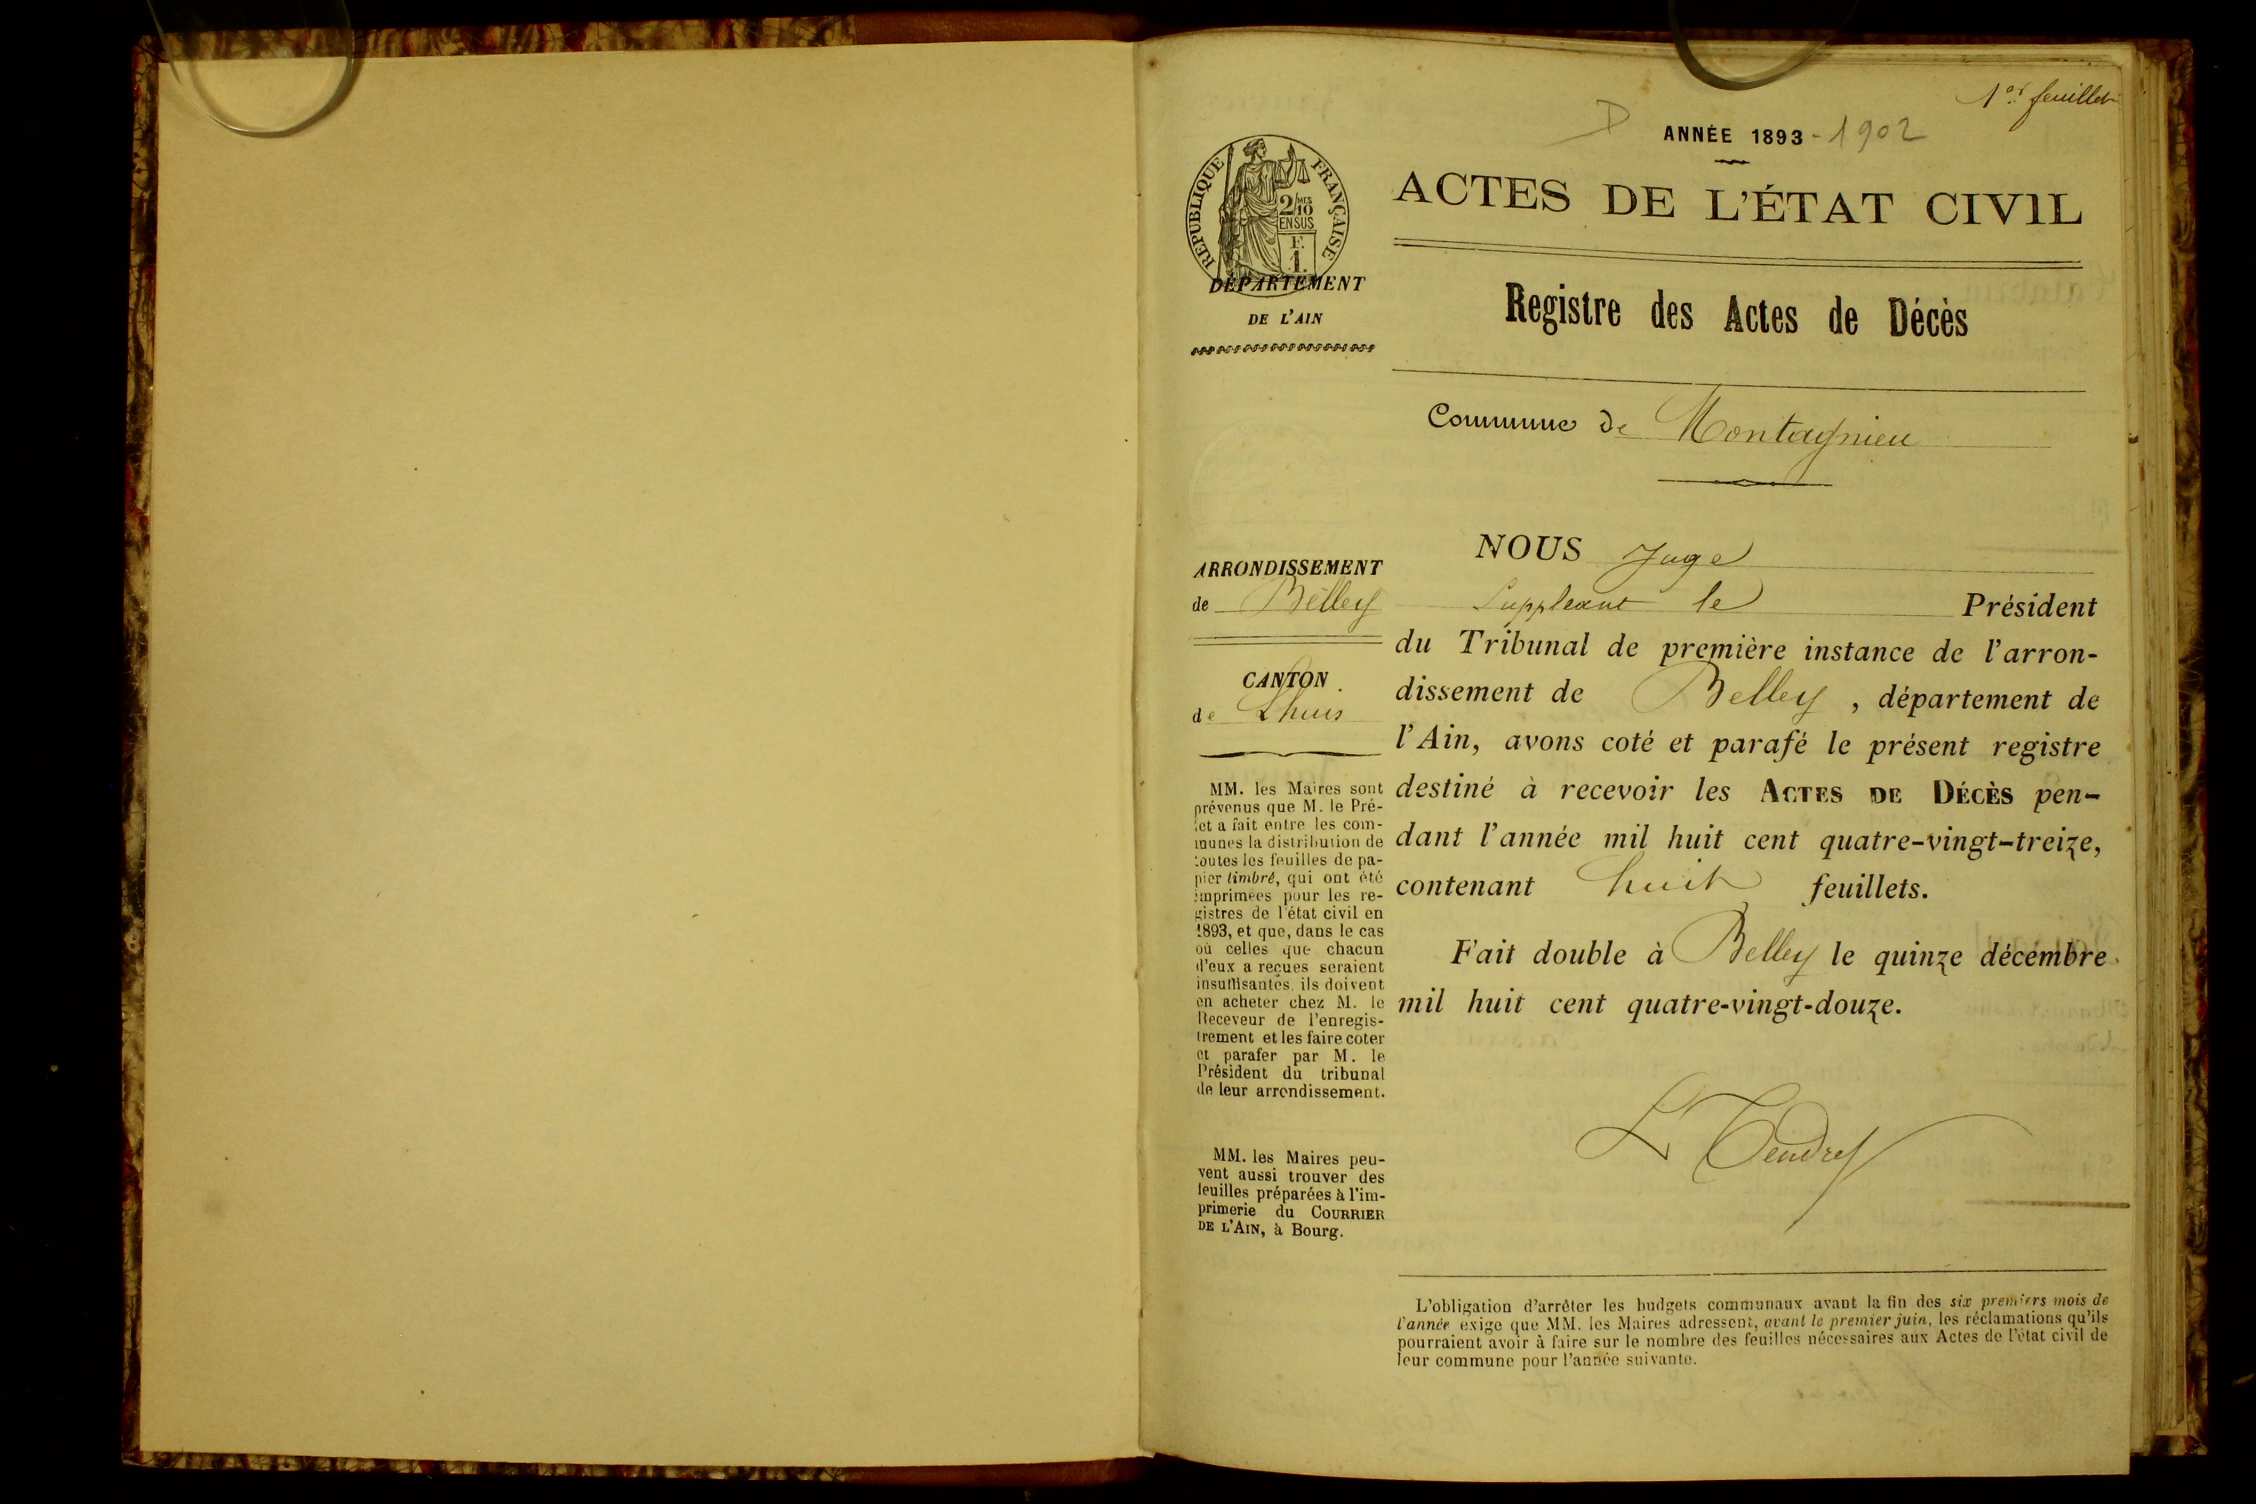 1er feuillet
D ANNÉE 1893 - 1902
ACTES DE L'ÉTAT CIVIL
RÉPUBLIQUE FRANÇAISE
2/10 MES
EN SUS
F.
1.
DÉPARTEMENT
DE L'AIN
Registre des Actes de Décès
Commune de Montagnieu
ARRONDISSEMENT
de Belley
CANTON
de Lhuis
MM. les Maires sont
prévenus que M. le Pré-
fet a fait entre les com-
munes la distribution de
toutes les feuilles de pa-
pier timbré, qui ont été
imprimées pour les re-
gistres de l'état civil en
1893, et que, dans le cas
où celles que chacun
d'eux a reçues seraient
insuffisantes, ils doivent
en acheter chez M. le
Receveur de l'enregis-
trement et les faire coter
et parafer par M. le
Président du tribunal
de leur arrondissement.
MM. les Maires peu-
vent aussi trouver des
feuilles préparées à l'im-
primerie du COURRIER
DE L'AIN, à Bourg.
NOUS Juge
Suppléant le Président
du Tribunal de première instance de l'arron-
dissement de Belley, département de
l'Ain, avons coté et parafé le présent registre
destiné à recevoir les ACTES DE DÉCÈS pen-
dant l'année mil huit cent quatre-vingt-treize,
contenant huit feuillets.
Fait double à Belley le quinze décembre
mil huit cent quatre-vingt-douze.
L Tendret
L'obligation d'arrêter les budgets communaux avant la fin des six premiers mois de
l'année exige que MM. les Maires adressent, avant le premier juin, les réclamations qu'ils
pourraient avoir à faire sur le nombre des feuilles nécessaires aux Actes de l'état civil de
leur commune pour l'année suivante.